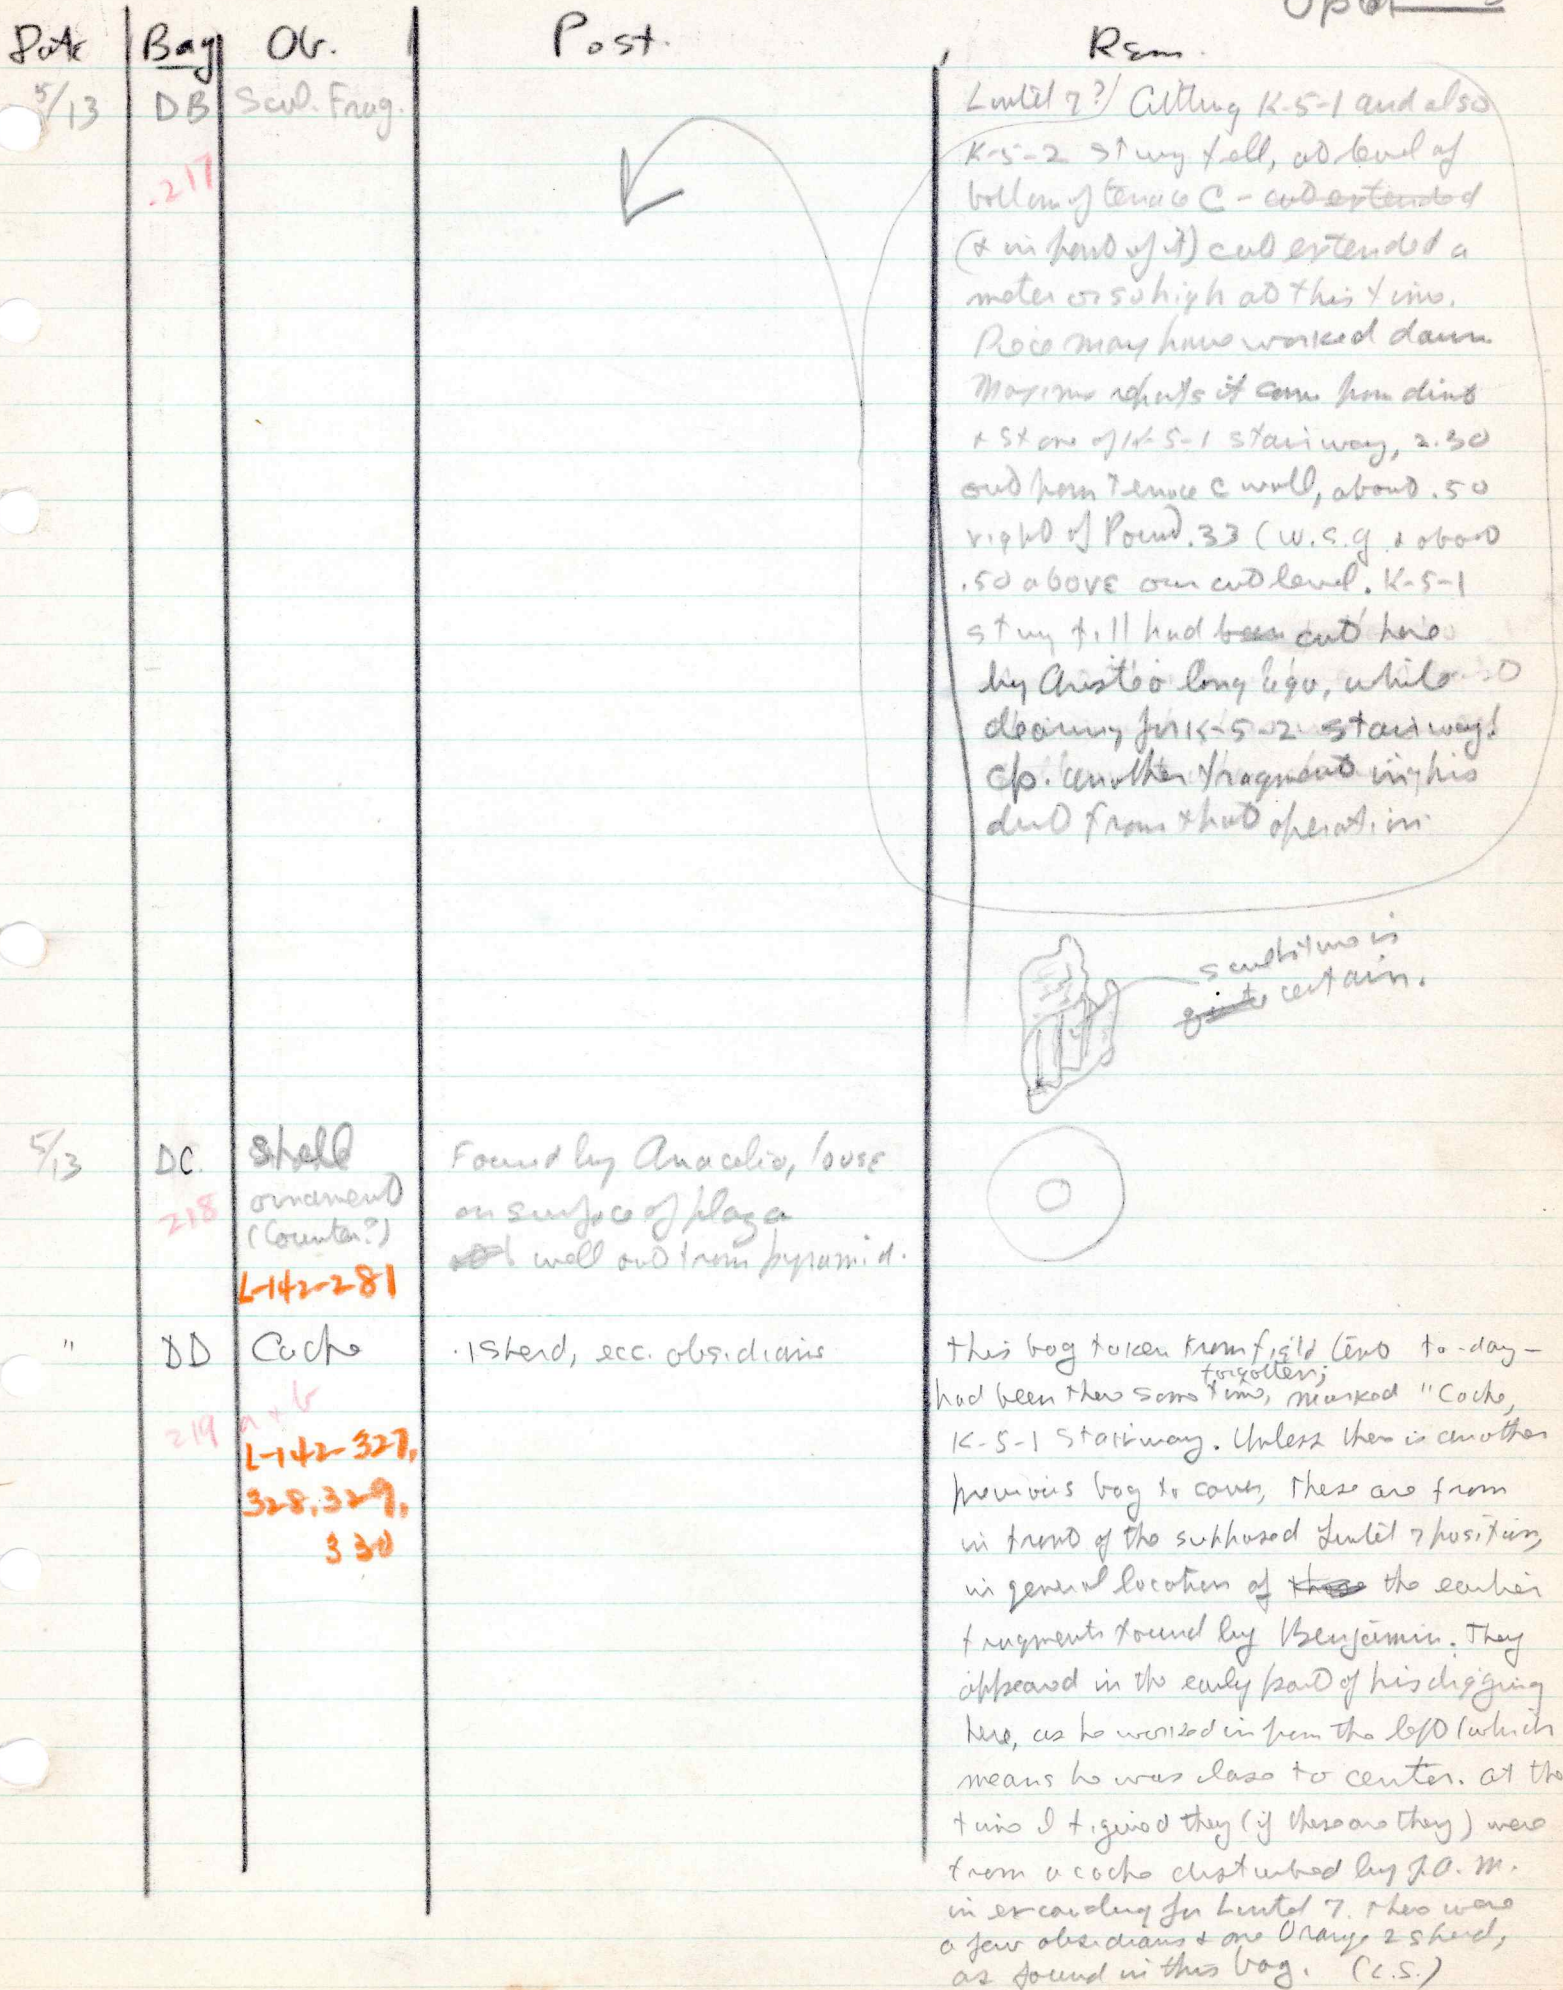 Date Bag Ob. Post. Rem.
5/13 DB Scul. Frag.
.217
Lintel 7?/ Cutting K-5-1 and also
K-5-2 stwy fill, at level of
bottom of terrace C - cut extended
(& in front of it) cut extended a
meter or so high at this time.
Piece may have worked down
Maximo reports it came from dirt
& stone of K-5-1 stairway, 2.30
out from terrace C wall, about .50
right of Pound.33 (W.S.g & about
.50 above our cut level. K-5-1
stwy fill had been cut here
by Aristeo long ago, while
clearing for K-5-2 stairway!
cp. another fragment in his
dirt from that operation.
certain.
5/13 DC. Shell
ornament
(Counter?)
218
L-142-281
Found by Anacelio, loose
on surface of plaza
well out from pyramid.
" DD Cache
219 a + b
L-142-327,
328,329,
330
.1 sherd, ecc. obsidians
This bag taken from field tent to-day-
had been there some time, forgotten; marked "Cache,
K-5-1 Stairway. Unless there is another
previous bag to cover, these are from
in front of the supposed Lintel 7 position,
in general location of these the earlier
fragments found by Benjamin. They
appeared in the early part of his digging
here, as he worked in from the left (which
means he was close to center. At the
time I figured they (if these are they) were
from a cache disturbed by J.A.M.
in excavating for Lintel 7. There were
a few obsidians & one Orange 2 sherd,
as found in this bag. (L.S.)